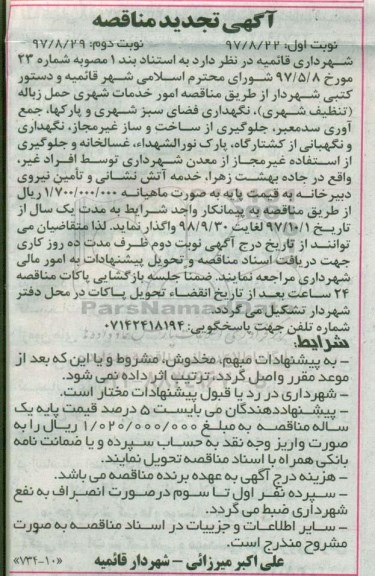 آگهی تجدید مناقصه
نوبت اول: ۹۷/۸/۲۲ نوبت دوم: ۹۷/۸/۲۹
شهرداری قائمیه در نظر دارد به استناد بند ۱ مصوبه شماره ۲۳
مورخ ۹۷/۵/۸ شورای محترم اسلامی شهر قائمیه و دستور
کتبی شهردار از طریق مناقصه امور خدمات شهری حمل زباله
(تنظیف شهری)، نگهداری فضای سبز شهری و پارکها، جمع
آوری سدمعبر، جلوگیری از ساخت و ساز غیرمجاز، نگهداری
و نگهبانی از کشتارگاه، پارک نورالشهداء، غسالخانه و جلوگیری
از استفاده غیرمجاز از معدن شهرداری توسط افراد غیر،
واقع در جاده بهشت زهرا، خدمه آتش نشانی و تأمین نیروی
دبیرخانه به قیمت پایه به صورت ماهیانه ۱/۷۰۰/۰۰۰/۰۰۰ ریال
از طریق مناقصه به پیمانکار واجد شرایط به مدت یک سال از
تاریخ ۹۷/۱۰/۱ لغایت ۹۸/۹/۳۰ واگذار نماید. لذا متقاضیان می
توانند از تاریخ درج آگهی نوبت دوم ظرف مدت ده روز کاری
جهت دریافت اسناد مناقصه و تحویل پیشنهادات به امور مالی
شهرداری مراجعه نمایند. ضمناً جلسه بازگشایی پاکات مناقصه
۲۴ ساعت بعد از تاریخ انقضاء تحویل پاکات در محل دفتر
شهردار تشکیل می گردد.
شماره تلفن جهت پاسخگویی: ۰۷۱۴۲۴۱۸۱۹۴
شرایط:
- به پیشنهادات مبهم، مخدوش، مشروط و یا این که بعد از
موعد مقرر واصل گردد، ترتیب اثر داده نمی شود.
- شهرداری در رد یا قبول پیشنهادات مختار است.
- پیشنهاددهندگان می بایست ۵ درصد قیمت پایه یک
ساله مناقصه به مبلغ ۱/۰۲۰/۰۰۰/۰۰۰ ریال را به
صورت واریز وجه نقد به حساب سپرده و یا ضمانت نامه
بانکی همراه با اسناد مناقصه تحویل نمایند.
- هزینه درج آگهی به عهده برنده مناقصه می باشد.
- سپرده نفر اول تا سوم درصورت انصراف به نفع
شهرداری ضبط می گردد.
- سایر اطلاعات و جزییات در اسناد مناقصه به صورت
مشروح مندرج است.
علی اکبر میرزائی - شهردار قائمیه «۱۰-۷۳۴»